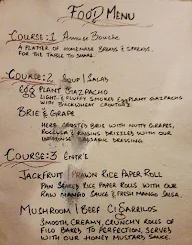 FOOD MENU
COURSE:1 Amuse Bouche
A PLATTER OF HOMEMADE BREADS & SPREADS
FOR THE TABLE TO SHARE.
COURSE:2 SOUP | SALAD
EGG PLANT GAZPACHO
LIGHT & FLUFFY SMOKEY EGGPLANT GAZPACHO
WITH BUCKWHEAT CROUTONS
BRIE & GRAPE
HERB CRUSTED BRIE WITH NUTTY GRAPES,
ROCCULA & RAISINS DRIZZLED WITH OUR
BALSAMIC DRESSING
COURSE:3 ENTR'E
JACKFRUIT | PRAWN RICE PAPER ROLL
PAN SEARED RICE PAPER ROLLS WITH OUR
RAW MANGO SAUCE & FRESH MANGO SALSA
MUSHROOM | BEEF CIGARILOS
SMOOTH CREAMY CRUNCHY ROLLS OF
FILO BAKED TO PERFECTION, SERVED
WITH OUR HONEY MUSTARD SAUCE.